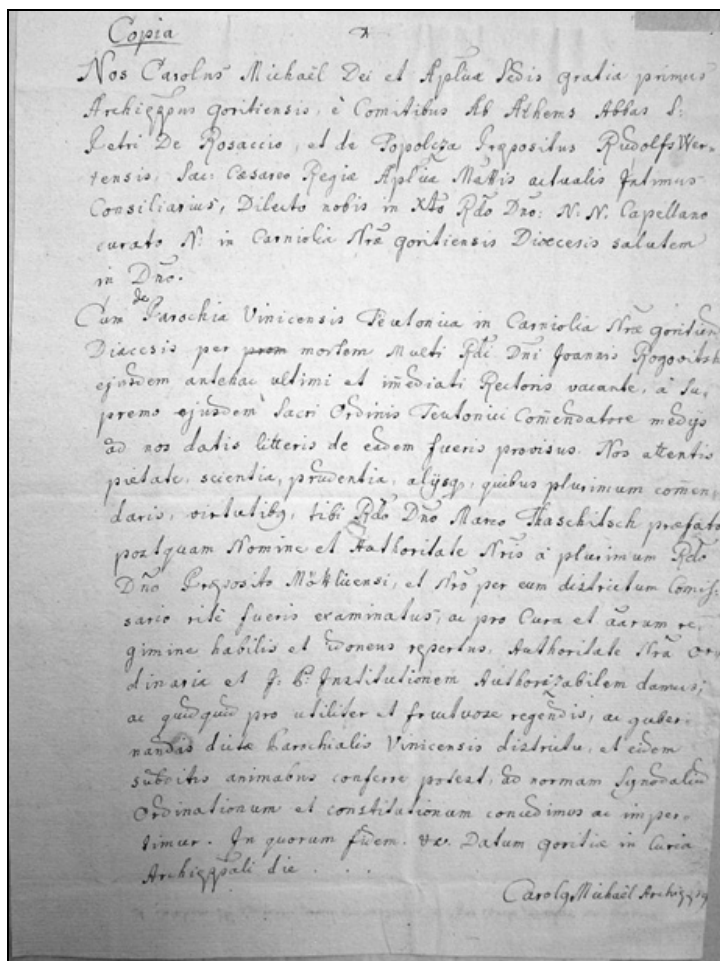 Copia
Nos Carolus Michaël Dei et Aplĩcæ Sedis gratia primus
Archieppus goritiensis, è Comitibus Ab Athems Abbas S:
Petri De Rosaccio, et de Topolcza Præpositus RudolfsWer-
tensis, Sac: Cæsareo Regiæ Aplĩcæ Mattis actualis Intimus
Consiliarius, Dilecto nobis in Xto Rdo Dno: N: N. Capellano
curato N: in Carniolia Nræ goritiensis Diœcesis salutem
in Dno.
Cum de Parochia Vinicensis Teutonica in Carniolia Nræ goritien
Diæcesis per mortem Multi Rdi Dni Joannis Rogovitsh
ejusdem antehac ultimi et im̃ediati Rectoris vacante, à Su,
premo ejusdem Sacri Ordinis Teutonici Com̃endatore medijs
ad nos datis litteris de eadem fueris provisus. Nos attentis
pietate, scientia, prudentia, alijsq, quibus plurimum com̃en,
daris, virtutibq, tibi Rdo Dno Marco Thaschitsch præfato
postquam Nomine et Authoritate Nris à plurimum Rdo
Dno Præposito Möttlicensi, et Nro per eum districtum Comis-
sario ritè fueris examinatus, ac pro Cura et a͞arum re,
gimine habilis et idoneus repertus, Authoritate Nrã or
dinaria et J: P: Institutionem Authorizabilem damus;
ac quidquid pro utiliter et fructuose regendis, ac guber-
nandis dictæ Parochialis Vinicensis districtu, et eidem
subditis animabus conferre potest, ad normam Synodaliũ
Ordinationum et constitutionum concedimus ac imper-
timur. In quorum fidem. &c. Datum goritiæ in Curia
Archieppali die . . .
Carolq Michaël Archieppq